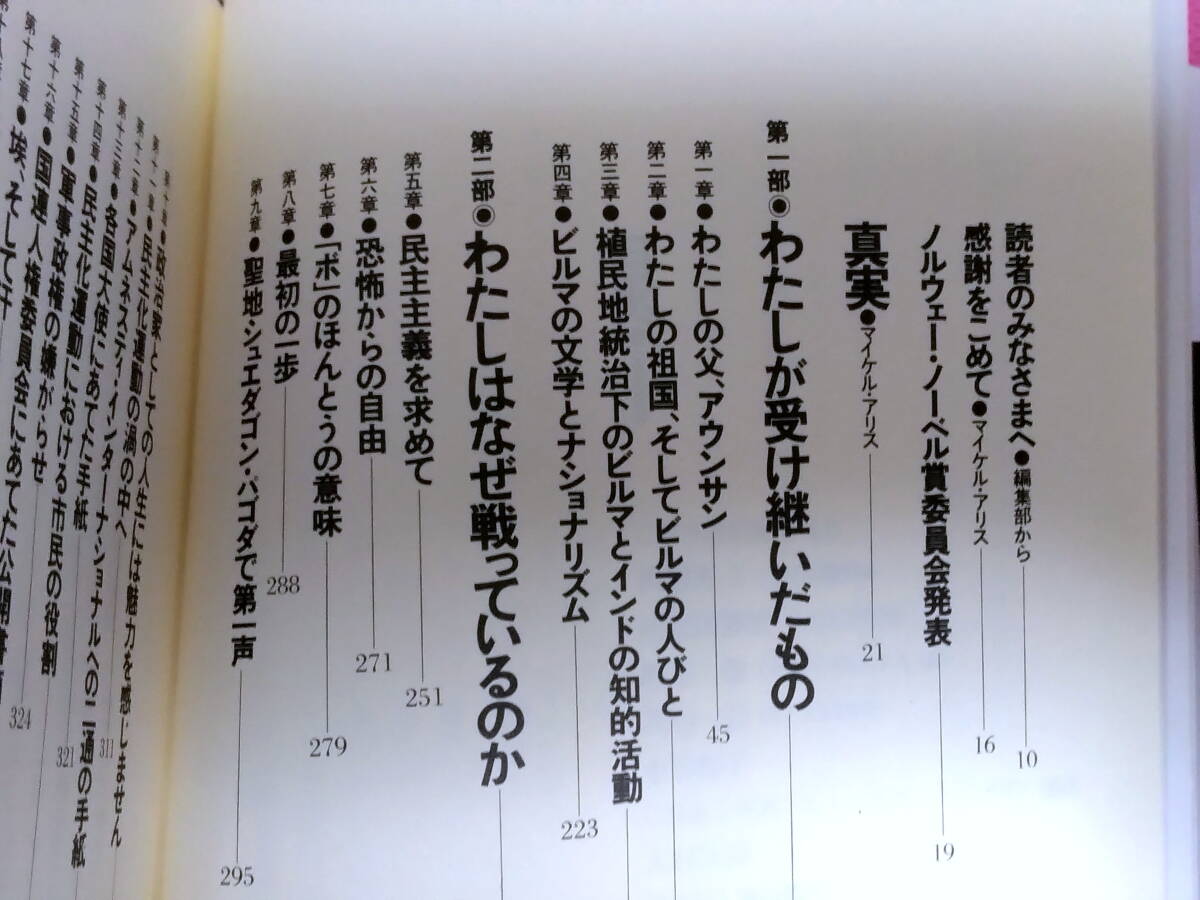 読者のみなさまへ●編集部から 10
感謝をこめて●マイケル・アリス 16
ノルウェー・ノーベル賞委員会発表 19
真実●マイケル・アリス 21
第一部◉わたしが受け継いだもの
第一章●わたしの父、アウンサン 45
第二章●わたしの祖国、そしてビルマの人びと
第三章●植民地統治下のビルマとインドの知的活動
第四章●ビルマの文学とナショナリズム 223
第二部◉わたしはなぜ戦っているのか
第五章●民主主義を求めて 251
第六章●恐怖からの自由 271
第七章●「ボ」のほんとうの意味 279
第八章●最初の一歩 288
第九章●聖地シュエダゴン・パゴダで第一声 295
第十章●政治家としての人生には魅力を感じません
第十一章●民主化運動の渦の中へ 311
第十二章●アムネスティ・インターナショナルへの二通の手紙
第十三章●各国大使にあてた手紙 321
第十四章●民主化運動における市民の役割
第十五章●軍事政権の嫌がらせ 324
第十六章●国連人権委員会にあてた公開書
第十七章●埃、そして汗